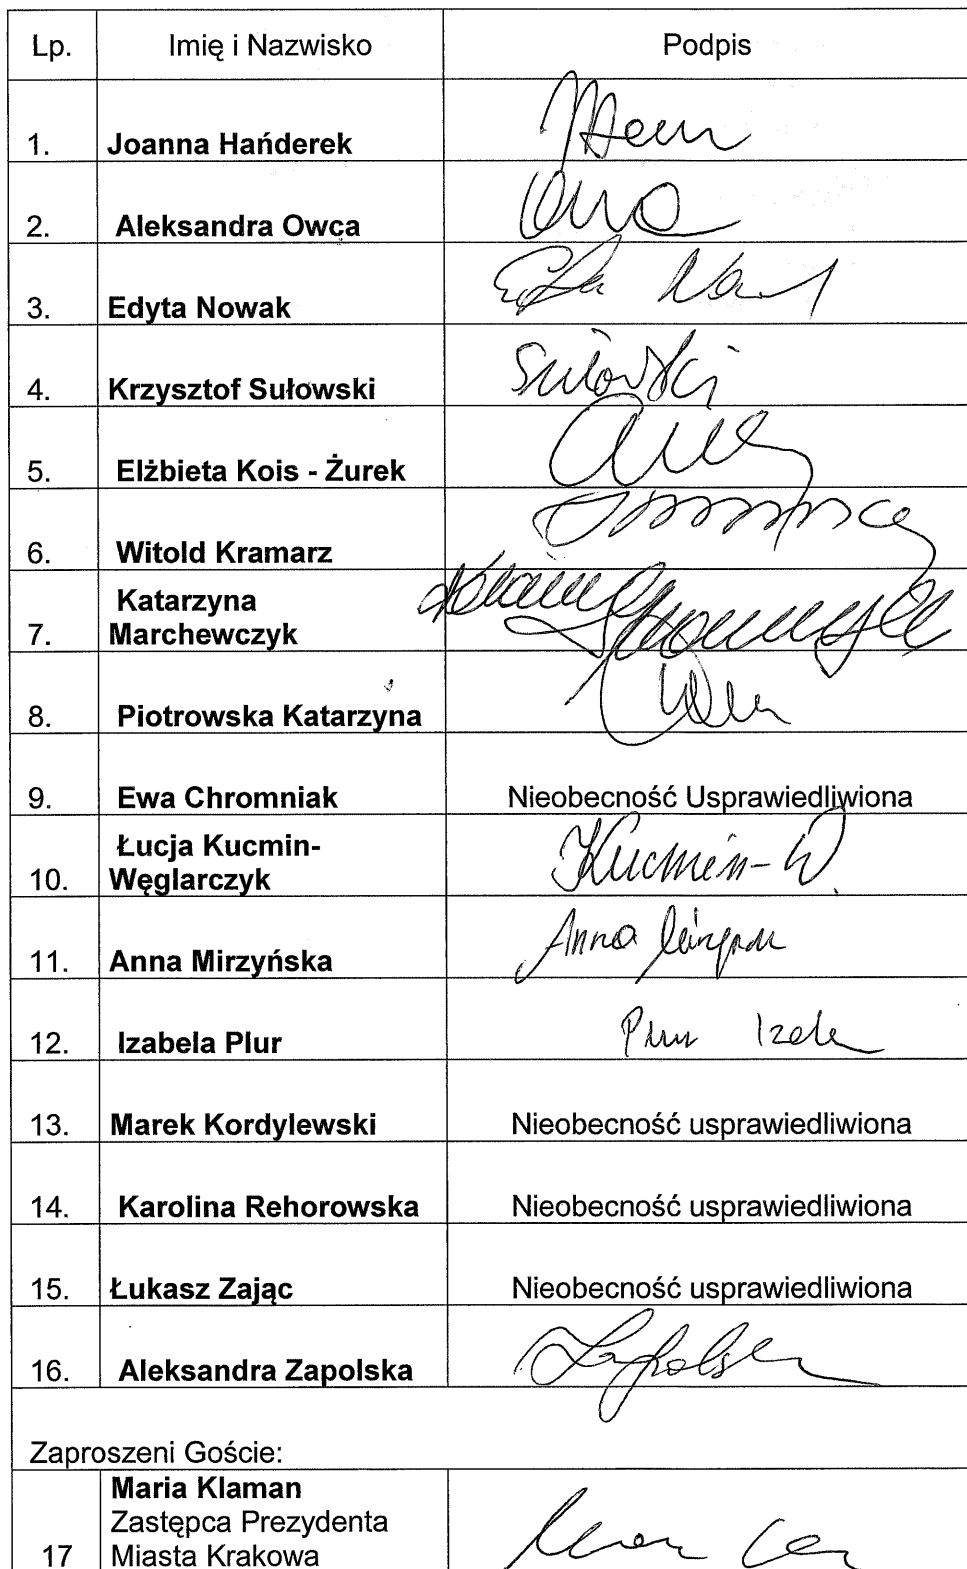 Lp. Imię i Nazwisko Podpis
1. Joanna Hańderek
2. Aleksandra Owca
3. Edyta Nowak
4. Krzysztof Sułowski Sułowski
5. Elżbieta Kois - Żurek
6. Witold Kramarz
Katarzyna
7. Marchewczyk
8. Piotrowska Katarzyna
9. Ewa Chromniak Nieobecność Usprawiedliwiona
Łucja Kucmin-
10. Węglarczyk Kucmin-W.
11. Anna Mirzyńska Anna
12. Izabela Plur
13. Marek Kordylewski Nieobecność usprawiedliwiona
14. Karolina Rehorowska Nieobecność usprawiedliwiona
15. Łukasz Zając Nieobecność usprawiedliwiona
16. Aleksandra Zapolska
Zaproszeni Goście:
Maria Klaman
Zastępca Prezydenta
17 Miasta Krakowa